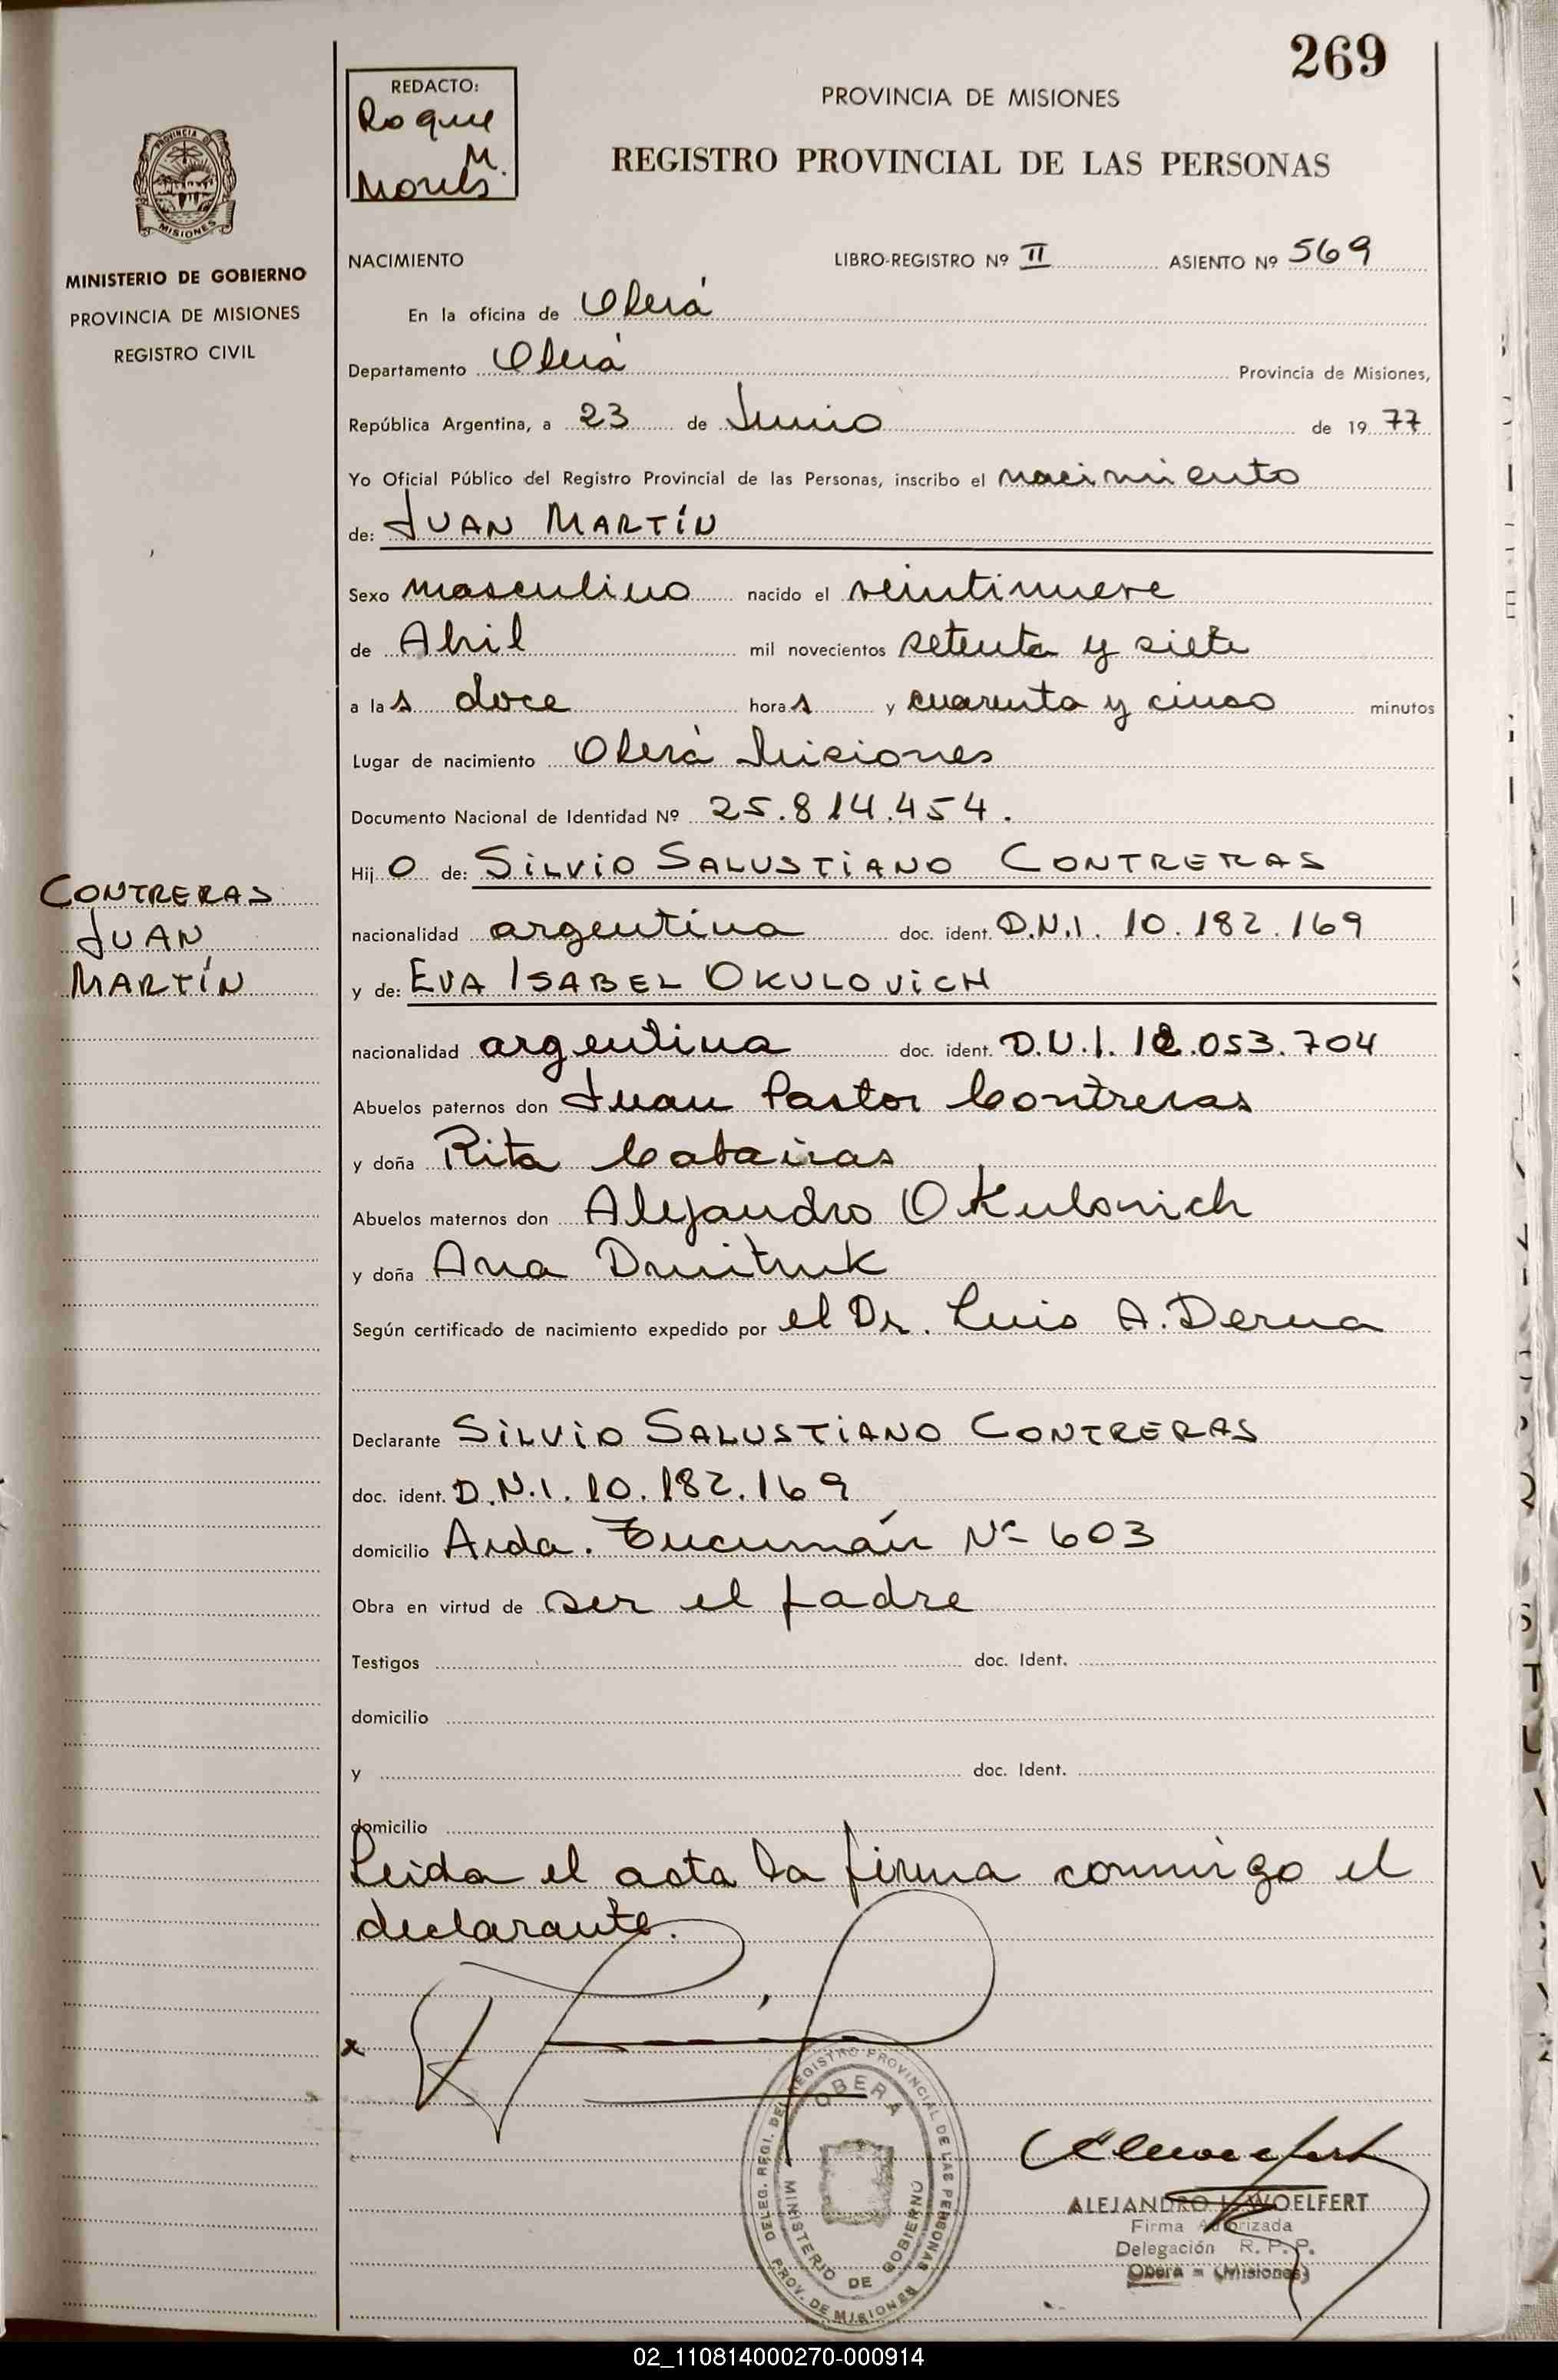 269
REDACTO:
Roque
M.
PROVINCIA DE MISIONES
REGISTRO PROVINCIAL DE LAS PERSONAS
PROVINCIA DE
MISIONES
MINISTERIO DE GOBIERNO
PROVINCIA DE MISIONES
REGISTRO CIVIL
NACIMIENTO LIBRO-REGISTRO Nº II ASIENTO Nº 569
En la oficina de Oberá
Departamento Oberá Provincia de Misiones,
República Argentina, a 23 de Junio de 1977
Yo Oficial Público del Registro Provincial de las Personas, inscribo el nacimiento
de: JUAN MARTÍN
Sexo masculino nacido el veintinueve
de Abril mil novecientos setenta y siete
a las doce horas y cuarenta y cinco minutos
Lugar de nacimiento Oberá Misiones
Documento Nacional de Identidad Nº 25.814.454.
Hijo de: SILVIO SALUSTIANO CONTRERAS
CONTRERAS
JUAN
MARTÍN
nacionalidad argentina doc. ident. D.N.I. 10.182.169
y de: EVA ISABEL OKULOVICH
nacionalidad argentina doc. ident. D.N.I. 12.053.704
Abuelos paternos don Juan Pastor Contreras
y doña Rita
Abuelos maternos don Alejandro Okulovich
y doña Ana Dmitruk
Según certificado de nacimiento expedido por el Dr. Luis A. Derna
Declarante SILVIO SALUSTIANO CONTRERAS
doc. ident. D.N.I. 10.182.169
domicilio Avda. Tucumán Nº 603
Obra en virtud de ser el padre
Testigos doc. Ident.
domicilio
y doc. Ident.
domicilio
Leida el acta la firma conmigo el
declarante.
x
DELEG. REGI. DEL REGISTRO PROVINCIAL DE LAS PERSONAS
OBERA
MINISTERIO DE GOBIERNO
PROV. DE MISIONES
ALEJANDRO L. WOELFERT
Firma Autorizada
Delegación R. P. P.
Oberá - (Misiones)
02_110814000270-000914